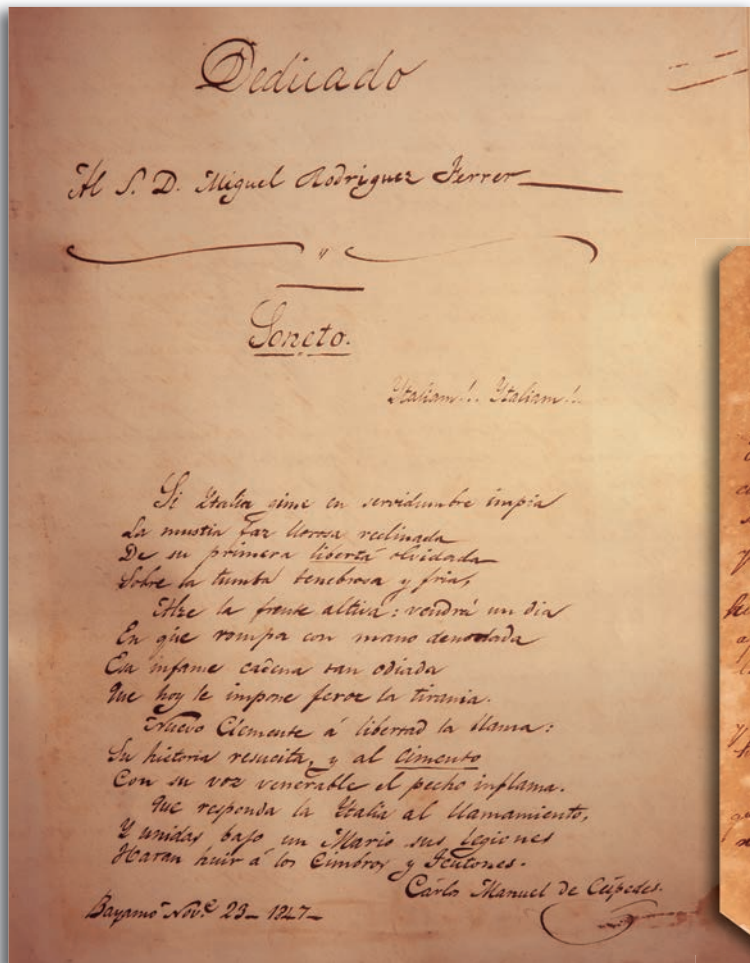 Dedicado
Al S. D. Miguel Rodriguez Ferrer
Soneto.
Ytaliam!.. Ytaliam!..
Si Ytalia gime en servidumbre impia
La mustia faz llorosa reclinada
De su primera libertá olvidada
Sobre la tumba tenebrosa y fria,
Alze la frente altiva: vendrá un dia
En que rompa con mano denodada
Esa infame cadena tan odiada
Que hoy le impone feroz la tirania.
Nuevo Clemente á libertad la llama:
Su historia resucita, y al cimento
Con su voz venerable el pecho inflama.
Que responda la Ytalia al llamamiento,
Y unidas bajo un Mario sus legiones
Haran huir á los Cimbros y Teutones.
Cárlos Manuel de Céspedes.
Bayamo Nov.e 23_ 1847_